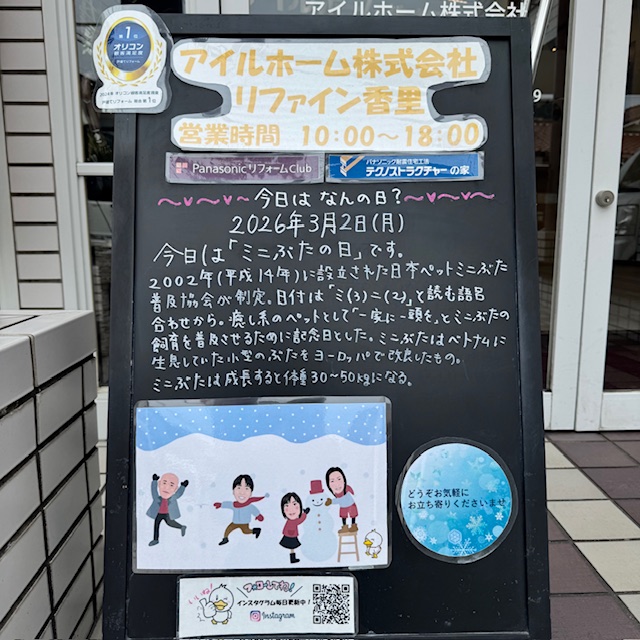 アイルホーム株式会社
第1位
オリコン
顧客満足度
アイルホーム株式会社
リファイン香里
営業時間 10:00～18:00
Panasonic リフォームClub
パナソニック耐震住宅工法
テクノストラクチャーの家
今日は なんの日?
2026年3月2日(月)
今日は「ミニぶたの日」です。
2002年(平成14年)に設立された日本ペットミニぶた
普及協会が制定。日付は「ミ(3)ニ(2)」と読む語呂
合わせから。癒し系のペットとして「一家に一頭を」とミニぶたの
飼育を普及させるために記念日とした。ミニぶたはベトナムに
生息していた小型のぶたをヨーロッパで改良したもの。
ミニぶたは成長すると体重30～50kgになる。
どうぞお気軽に
お立ち寄りくださいませ
いいね!
フォローしてね!
インスタグラム毎日更新中!
Instagram